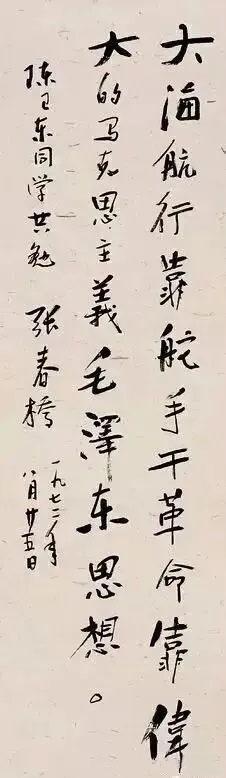 大海航行靠舵手干革命靠偉
大的马克思主義毛澤东思想。
陈卫东同学共勉
张春橋
一九七二年
八月廿五日